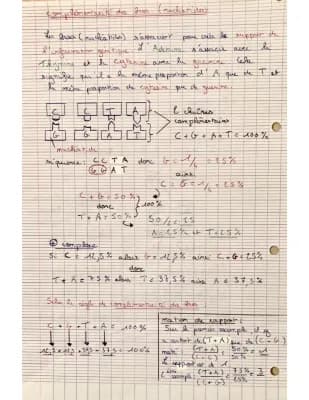 Complémentarité des bases (nucléotides)
Les bases (nucléotides) s'associent pour créer le support de
l'information génétique. L'Adénine s'associe avec la
Thymine et la cytosine avec la guanine. Cela
signifie qu'il y a la même proportion d'A que de T et
la même proportion de cytosine que de guanine.
C C T A
G G A T
2 chaînes
complémentaires
C + G + A + T = 100%
nucléotide
séquence: C C T A donc G = 1/4 = 25%
G G A T ainsi
C = G = 1/4 = 25%
C + G = 50%
donc
T + A = 50%
100%
50/2 = 25
A = 25% et T = 25%
complexe
Si C = 12,5% alors G = 12,5% ainsi C + G = 25%
donc
T + A = 75% alors T = 37,5% ainsi A = 37,5%
Selon la règle de complémentarité des bases
C + G + T + A = 100%
12,5 + 12,5 + 37,5 + 37,5 = 100%
Notion de rapport:
Sur le premier exemple il y
a autant de (T+A) que de (C+G)
(T+A)/(C+G) = 50%/50% = 1
le rapport de 1.
(T+A)/(C+G) = 75%/25% = 3